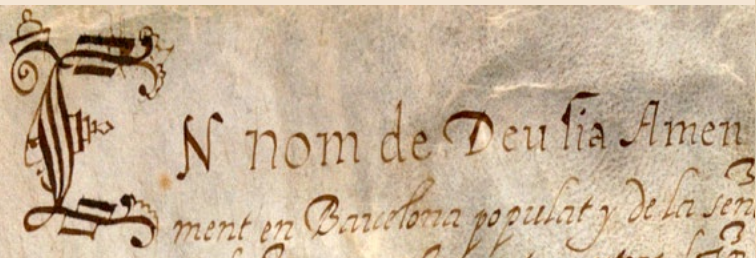 EN nom de Deu sia Amen
ment en Barcelona populat y de la sen